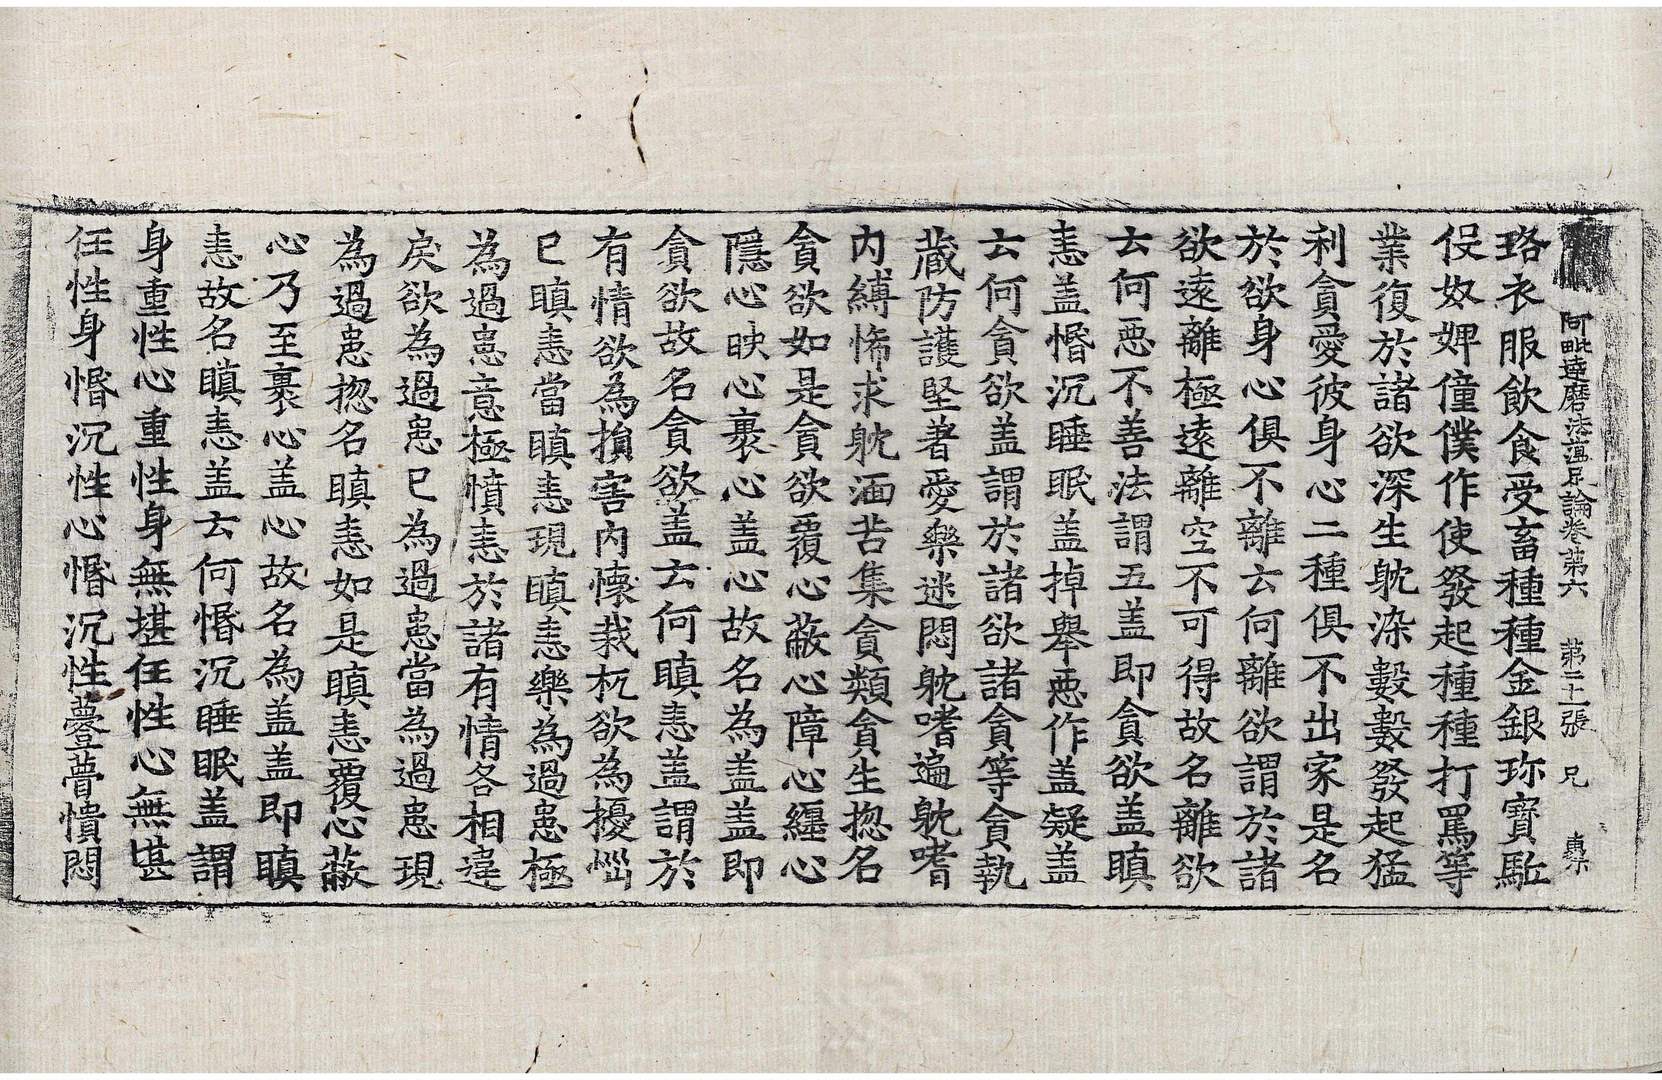 阿毗達磨法蘊足論卷第六　第二十一張　兄
珞衣服飲食受畜種種金銀珎寶駈
役奴婢僮僕作使發起種種打罵等
業復於諸欲深生躭染數數發起猛
利貪愛彼身心二種俱不出家是名
於欲身心俱不離云何離欲謂於諸
欲遠離極遠離空不可得故名離欲
云何惡不善法謂五盖即貪欲盖瞋
恚盖惛沉睡眠盖掉舉惡作盖疑盖
云何貪欲盖謂於諸欲諸貪等貪執
藏防護堅著愛樂迷悶躭嗜遍躭嗜
内縛悕求躭湎苦集貪類貪生揔名
貪欲如是貪欲覆心蔽心障心纏心
隱心映心裹心盖心故名為盖盖即
貪欲故名貪欲盖云何瞋恚盖謂於
有情欲為損害内懷栽杌欲為擾惱
已瞋恚當瞋恚現瞋恚樂為過患極
為過患意極憤恚於諸有情各相違
戾欲為過患已為過患當為過患現
為過患揔名瞋恚如是瞋恚覆心蔽
心乃至裹心盖心故名為盖盖即瞋
恚故名瞋恚盖云何惛沉睡眠盖謂
身重性心重性身無堪任性心無堪
任性身惛沉性心惛沉性薹瞢憒悶